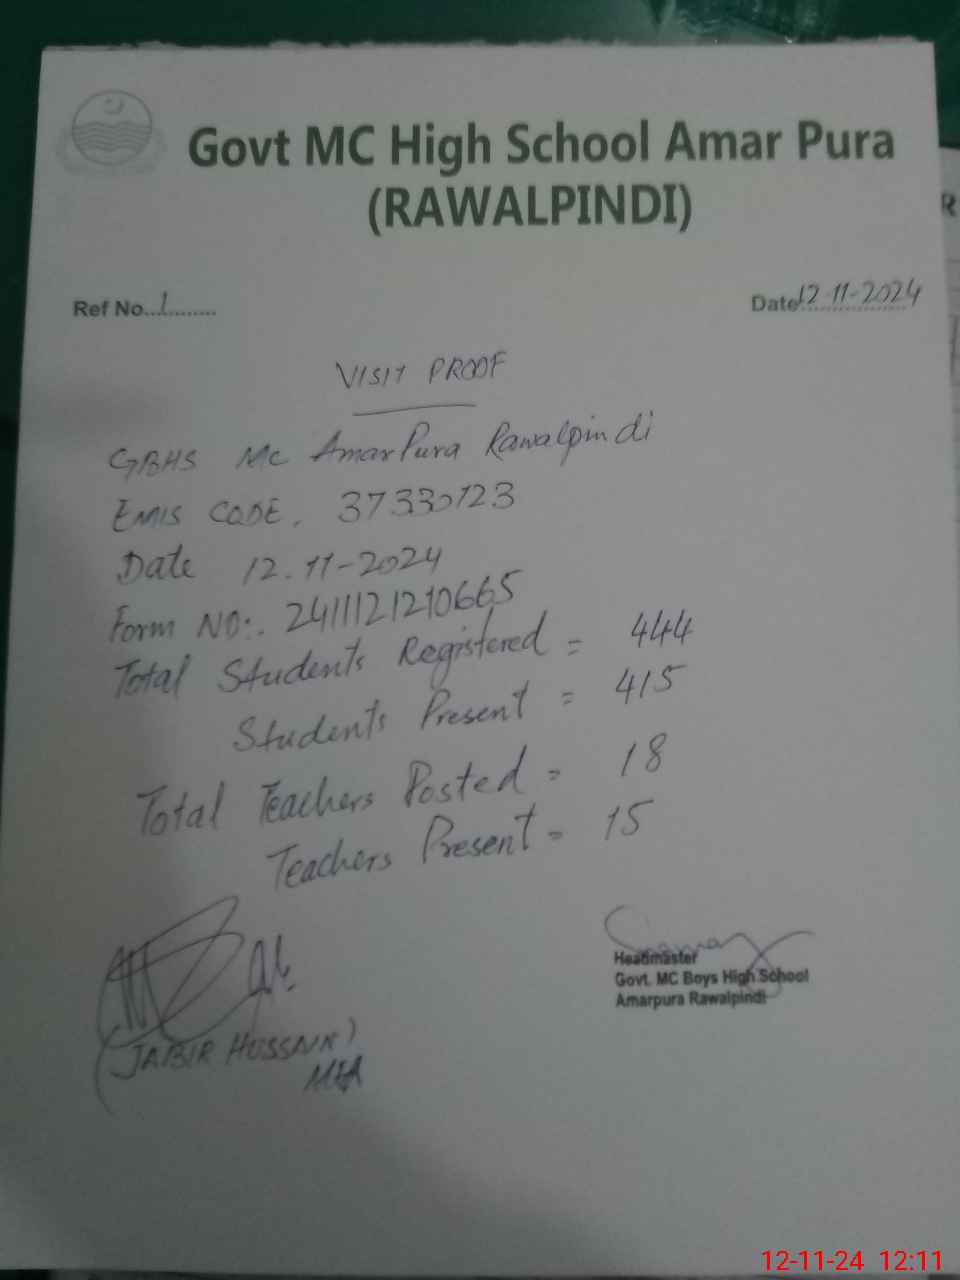 Govt MC High School Amar Pura
(RAWALPINDI)
Ref No...1..........
Date 12-11-2024
VISIT PROOF
GBHS MC AmarPura Rawalpindi
EMIS CODE. 37330123
Date 12.11-2024
Form NO:. 241112121066​5
Total Students Registered = 444
Students Present = 415
Total Teachers Posted = 18
Teachers Present = 15
Headmaster
Govt. MC Boys High School
Amarpura Rawalpindi
(JABIR HUSSAIN)
MEA
R
12-11-24 12:11